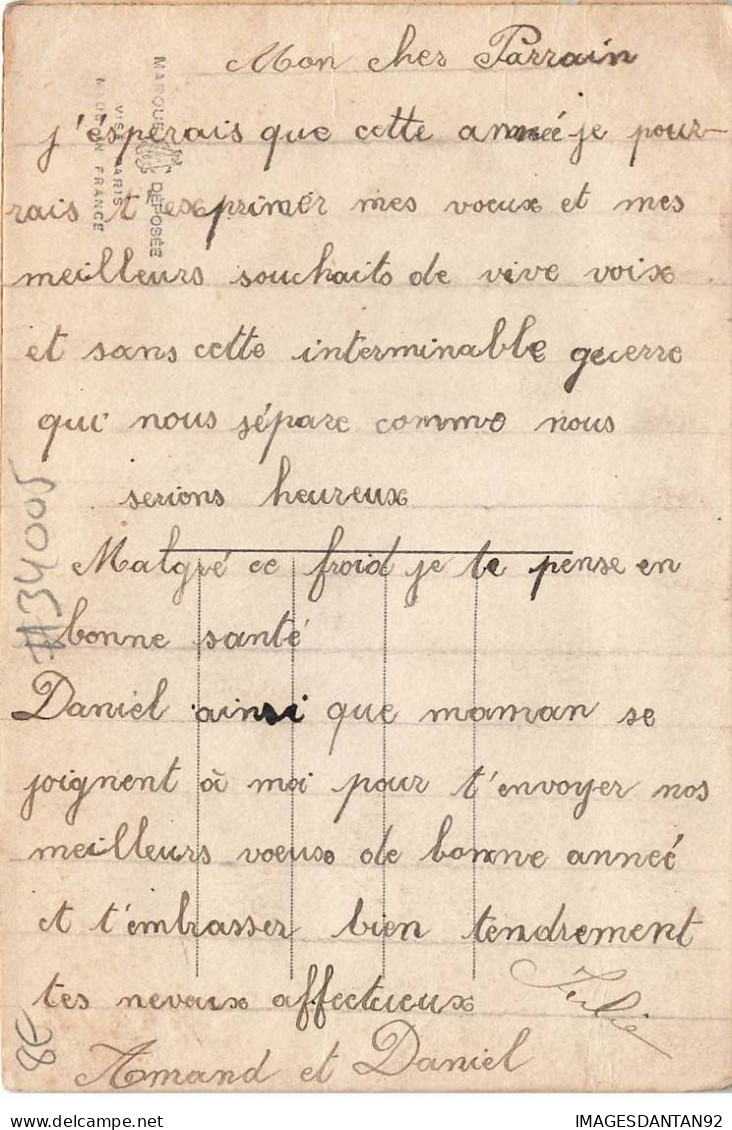 Mon cher Parrain
j'éspérais que cette année je pour-
rais t'exprimer mes voeux et mes
meilleurs souchaits de vive voix
et sans cette interminable guerre
qui nous sépare comme nous
serions heureux
Malgré ce froid je te pense en
bonne santé
Daniel ainsi que maman se
joignent à moi pour t'envoyer nos
meilleurs voeux de bonne anneé
et t'embrasser bien tendrement
tes neveux affectueux Julie
Amand et Daniel
MARQUE DÉPOSÉE
VISÉ PARIS
FRANCE
A34005
8€
IMAGESDANTAN92